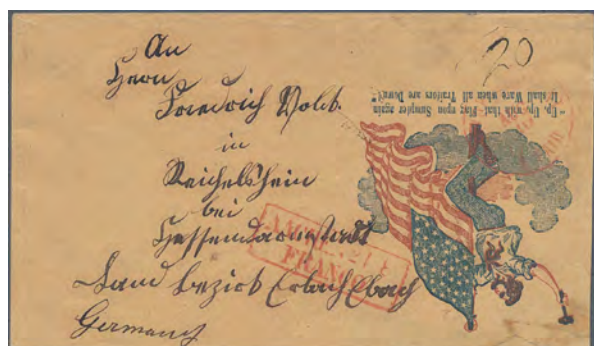 An
20
Herrn
Friedrich
in
Reichelsheim
bei
Hessendarmstadt
Land bezirk Erbach
Germany
"Up, Up, with that Flag upon Sumpter again
It shall Wave when all Traitors are Down!"
FRANCO